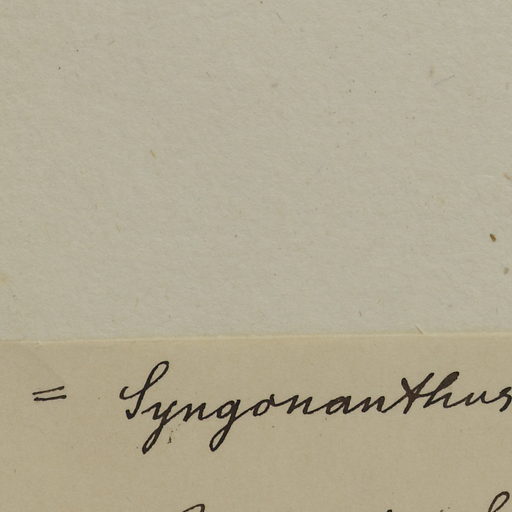 = Syngonanthus